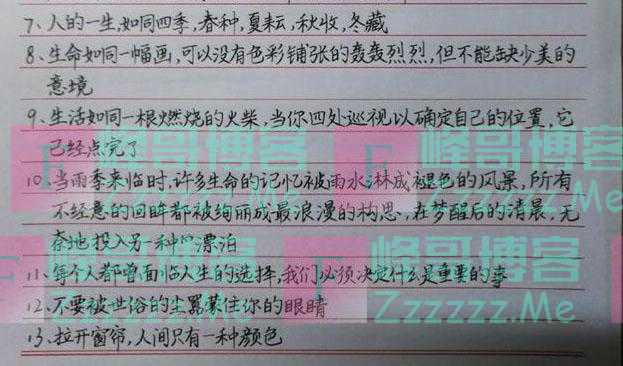 7、人的一生,如同四季,春种,夏耘,秋收,冬藏
8、生命如同一幅画,可以没有色彩铺张的轰轰烈烈,但不能缺少美的
意境
9、生活如同一根燃烧的火柴,当你四处巡视以确定自己的位置,它
已经点完了
10、当雨季来临时,许多生命的记忆被雨水淋成褪色的风景,所有
不经意的回眸都被绚丽成最浪漫的构思,在梦醒后的清晨,无
奈地投入另一种心漂泊
11、每个人都曾面临人生的选择,我们必须决定什么是重要的事
12、不要被世俗的尘嚣蒙住你的眼睛
13、拉开窗帘,人间只有一种颜色
峰哥博客
Zzzzzz.Me
峰哥博客
Zzzzzz.Me
峰哥博客
Zzzzzz.Me
峰哥博客
Zzzzzz.Me